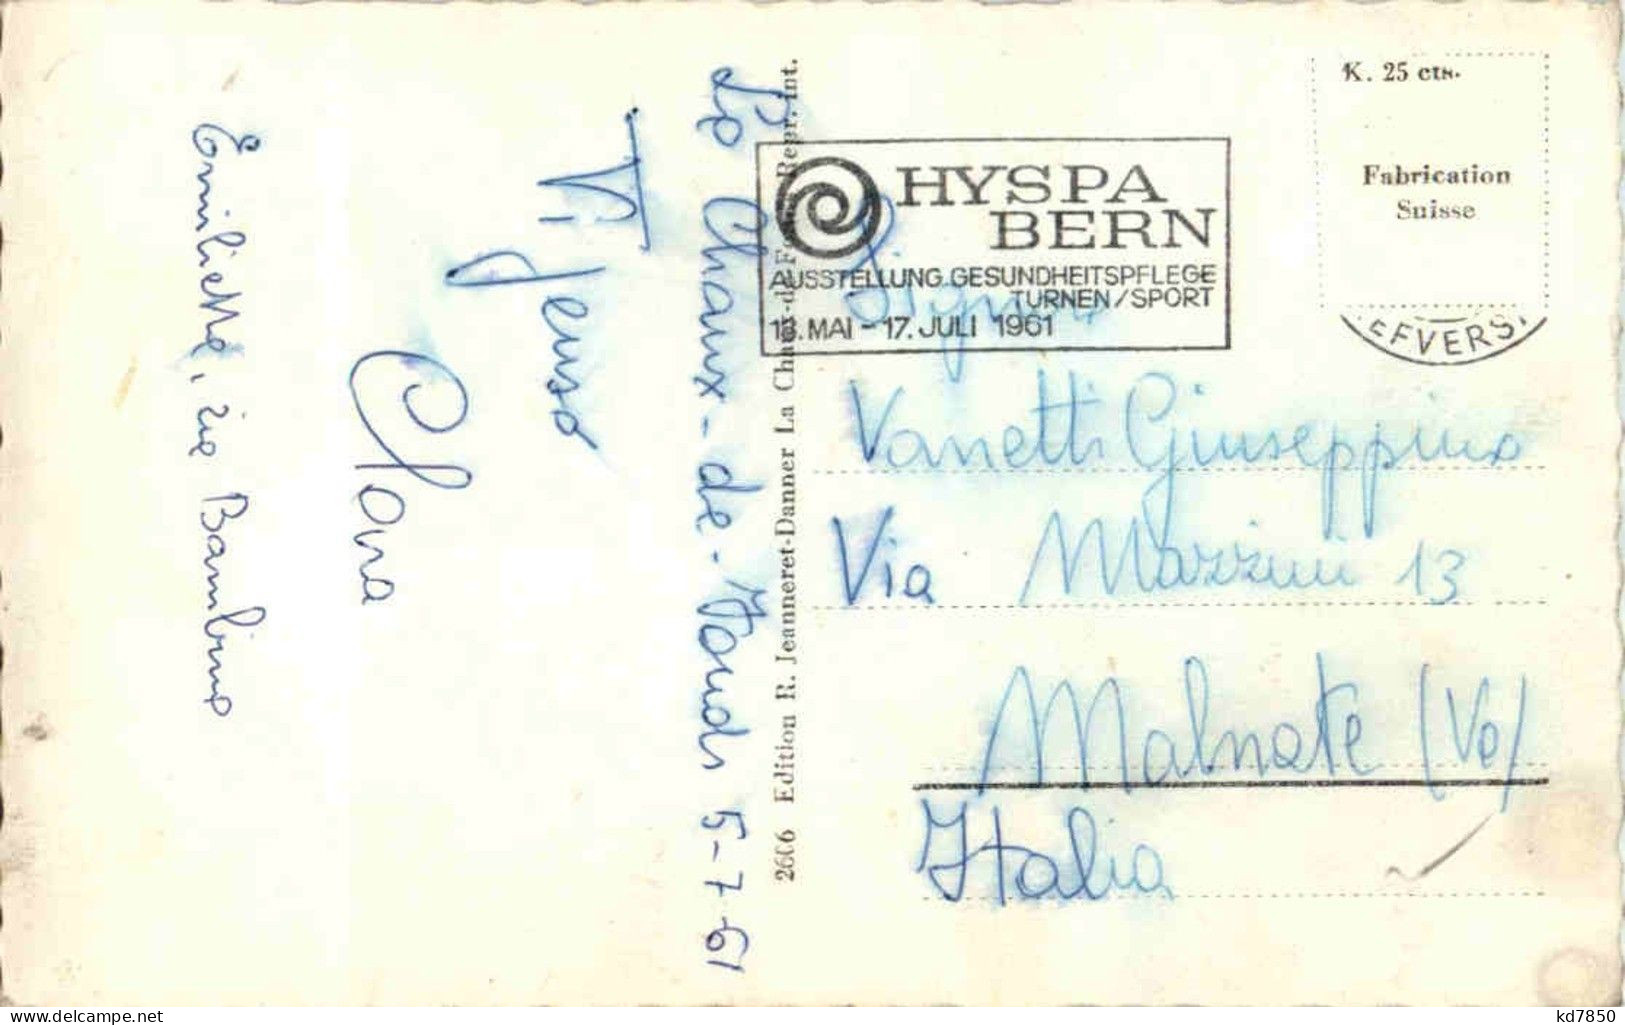 La Chaux-de-Fonds 5-7-61
Ti penso
Clara
Emilietta, zie Bambino
2606 Edition R. Jeanneret-Danner La Chaux-de-Fonds Repr. int.
K. 25 cts.
Fabrication
Suisse
HYSPA
BERN
AUSSTELLUNG GESUNDHEITSPFLEGE
TURNEN/SPORT
18. MAI - 17. JULI 1961
EFVERS
Vanetti Giuseppina
Via Mazzini 13
Malnate (Va)
Italia
delcampe.net
kd7850